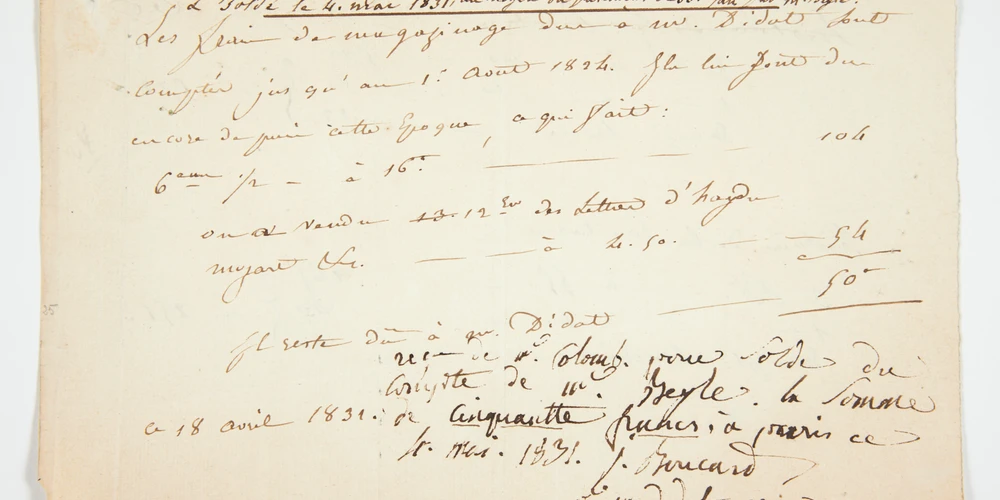 & Soldé le 4. mai 1831.
Les frais de magazinage dus a m. Didot sont
comptés jus qu'au 1r. Aout 1824. Il lui sont dus
encore depuis cette Epoque, ce qui fait :
6 ann 1/2 — à 16f. — 104
on a vendu 13-12 exes des Lettres d'haydn
mozart &c. — — à 4. 50. — — 54
50f
Il reste dû à m. Didot
reçu de mr. Colomb. pour Solde du
compte de mr. Beyle. la Somme
ce 18 avril 1831. de cinquantte francs, à paris ce
4. mai. 1831. J. Boucard
25